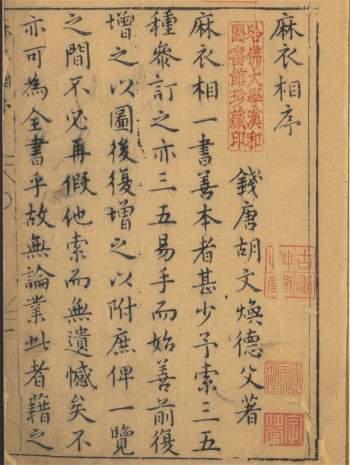 麻衣相序
哈佛大學漢和
圖書館珍藏印
錢唐胡文煥德父著
麻衣相一書善本者甚少予索三五
種參訂之亦三五易手而始善前復
增之以圖後復增之以附庶俾一覽
之間不必再假他索而無遺憾矣不
亦可為全書乎故無論業此者藉之